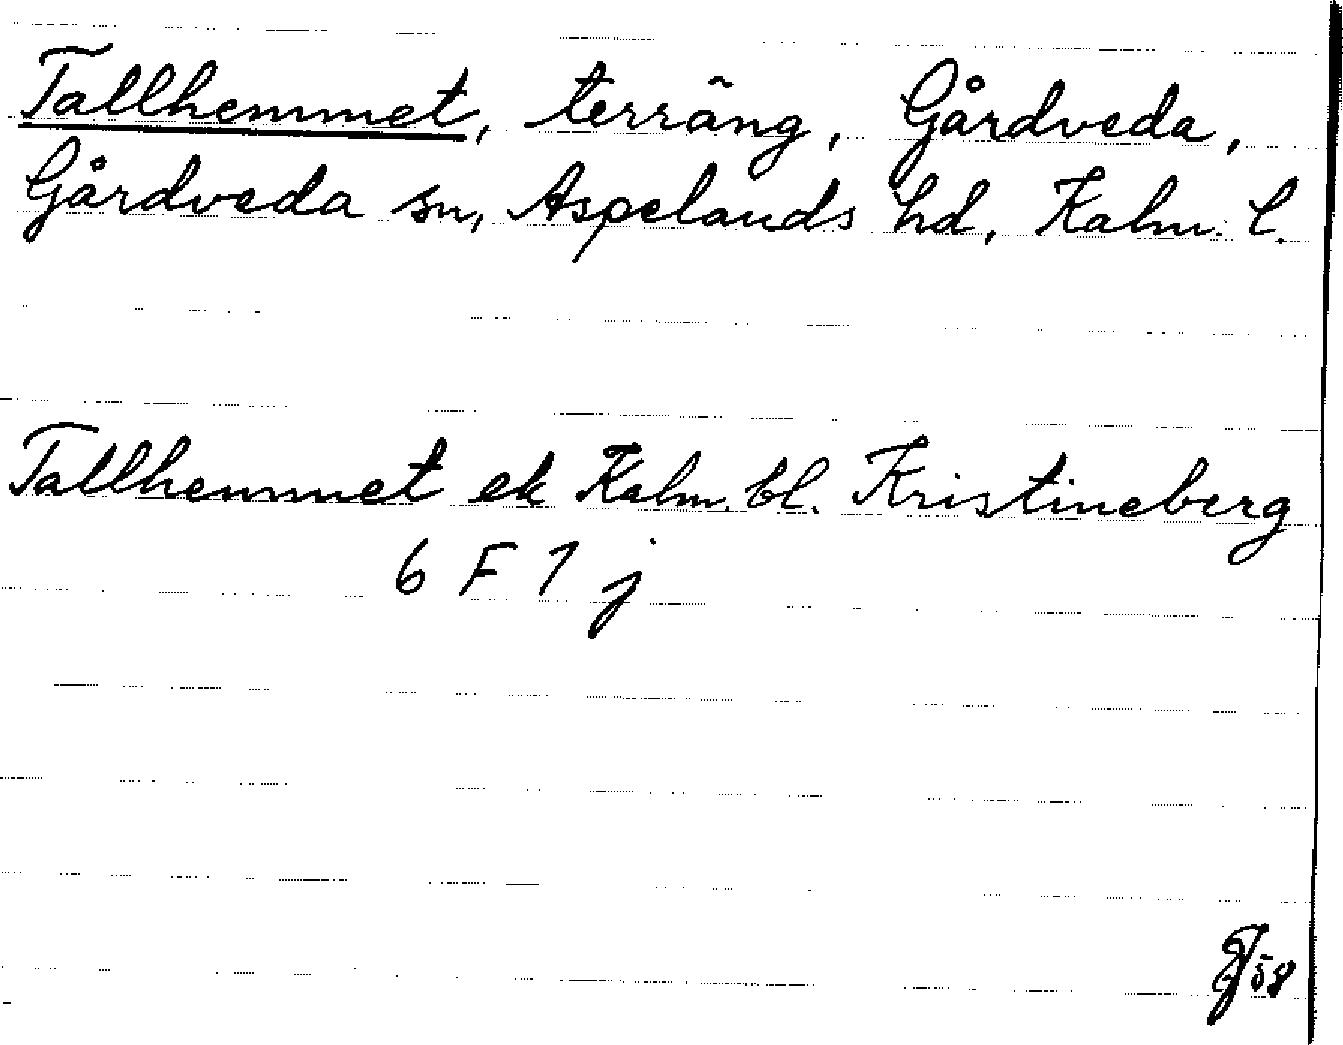 Tallhemmet, terräng, Gårdveda,
Gårdveda sn, Aspelands hd, Kalm. l.
Tallhemmet ek Kalm. bl. Kristineberg
6 F 7 j
58